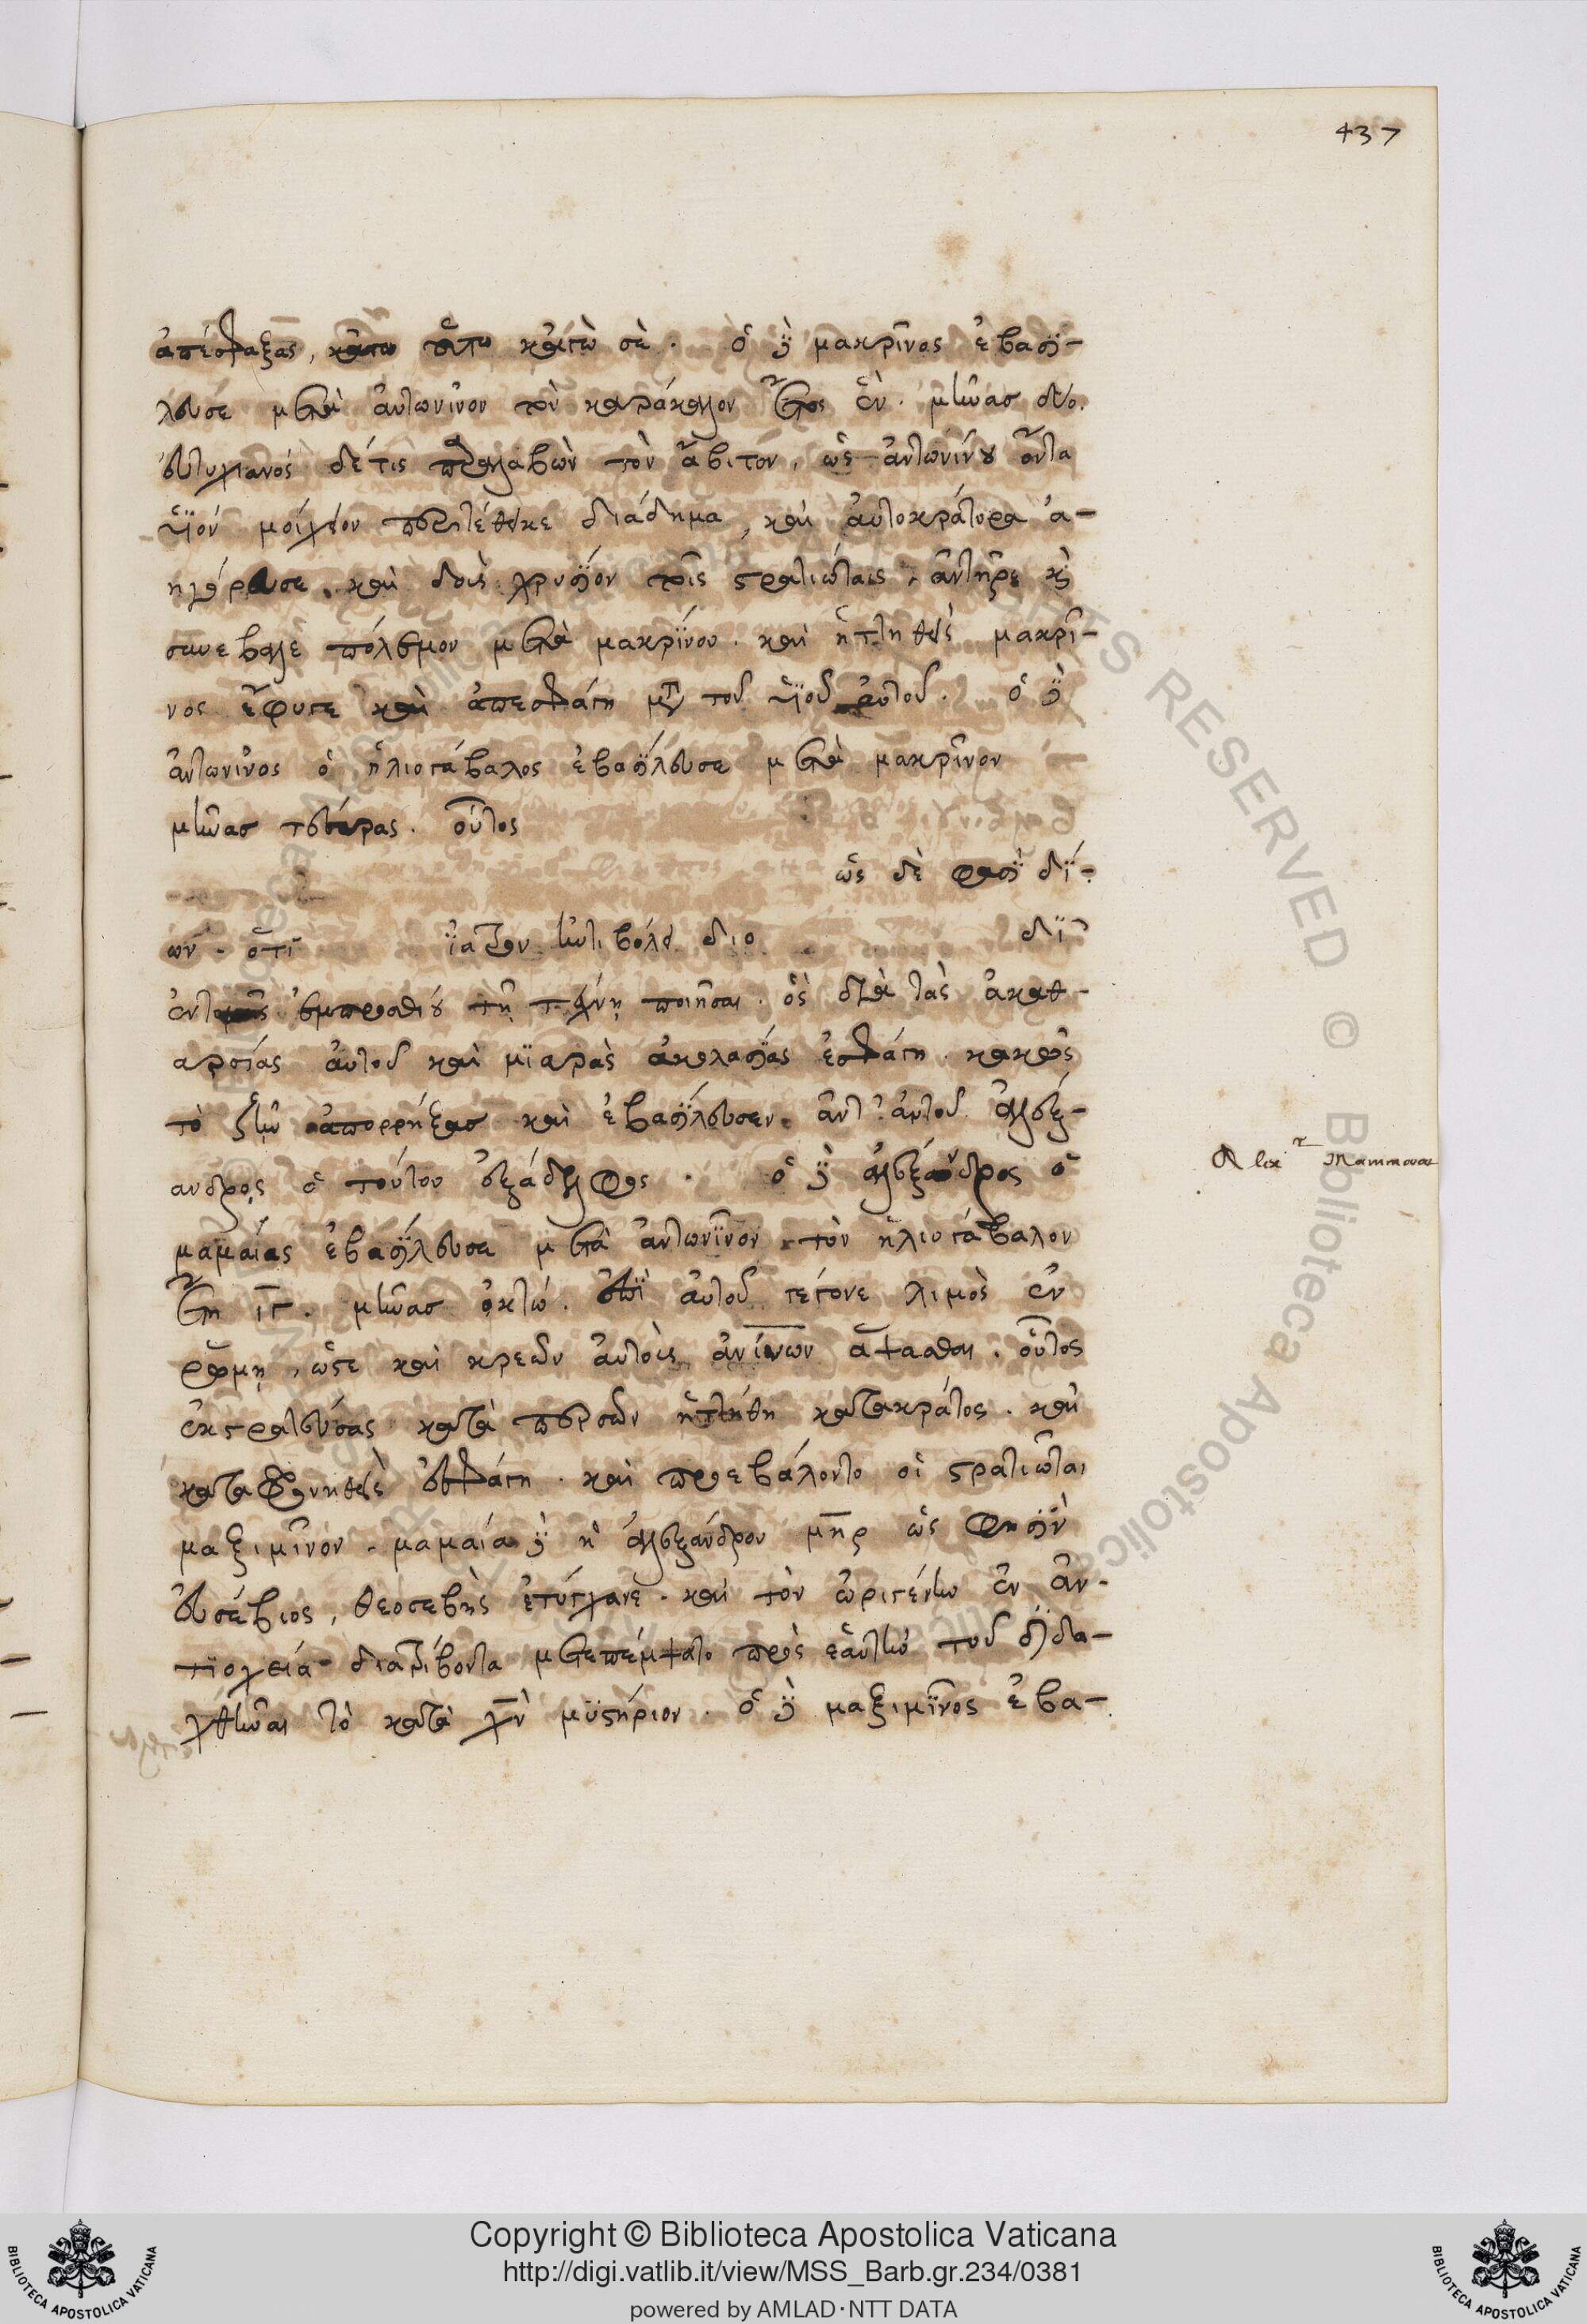 437
ἀπέσφαξας, κἀγὼ σὲ. ὁ δὲ μακρῖνος ἐβασί-
λευσε μετὰ ἀντωνῖνον τὸν καράκαλον ἔτος ἓν. μῆνας δύο.
εὐτυχιανός δέ τις προσλαβὼν τὸν ἄβιτόν, ὡς ἀντωνίνου ὄντα
υἱὸν μοίχιον περιτέθεικε διάδημα, καὶ αὐτοκράτορα ἀ-
νηγόρευσε. καὶ δοὺς χρυσίον τοῖς στρατιώταις, ἀντῆρε καὶ
συνέβαλε πόλεμον μετὰ μακρίνου. καὶ ἡττηθεὶς μακρῖ-
νος ἔφυγε καὶ ἀπεσφάγη μετὰ τοῦ υἱοῦ αὐτοῦ. ὁ δὲ
ἀντωνῖνος ὁ ἡλιογάβαλος ἐβασίλευσε μετὰ μακρῖνον
μῆνας τέσσαρας. οὗτος
ὡς δὲ φασὶ δί-
ων. ὅτι ἰατρὸν ἠντιβόλει διο δϊ
ἐντομῆς ἐμπροσθίου τῇ τέχνῃ ποιῆσαι. ὃς διὰ τὰς ἀκαθ-
αρσίας αὐτοῦ καὶ μιαρὰς ἀκολασίας ἐσφάγη. κακῶς
τὸ ζῆν ἀπορρήξας καὶ ἐβασίλευσεν ἀντ' αὐτοῦ ἀλέξ-
ανδρος ὁ τούτου ἐξάδελφος. ὁ δὲ ἀλέξανδρος ὁ
Alex^r Mammaeae
μαμαίας ἐβασίλευσε μετὰ ἀντωνῖνον τὸν ἡλιογάβαλον
ἔτη ιγ. μῆνας ὀκτώ. ἐπὶ αὐτοῦ γέγονε λιμὸς ἐν
ῥώμῃ, ὥστε καὶ κρεῶν αὐτοὺς ἀνίνων ἅψασθαι. οὗτος
ἐκστρατεύσας κατὰ περσῶν ἡττήθη κατακράτος. καὶ
καταφρονηθεὶς ἐσφάγη. καὶ προεβάλοντο οἱ στρατιῶται
μαξιμῖνον. μαμαία δὲ ἡ ἀλεξάνδρου μηρ ὥς φησὶν
εὐσέβιος, θεοσεβὴς ἐτύγχανε. καὶ τὸν ὠριγένην ἐν ἀν-
τιοχείᾳ διατρίβοντα μετεπέμψατο πρὸς ἑαυτὴν τοῦ διδα-
χθῆναι τὸ κατὰ χν μυστήριον. ὁ δὲ μαξιμῖνος ἐβα-
Copyright © Biblioteca Apostolica Vaticana
http://digi.vatlib.it/view/MSS_Barb.gr.234/0381
powered by AMLAD·NTT DATA